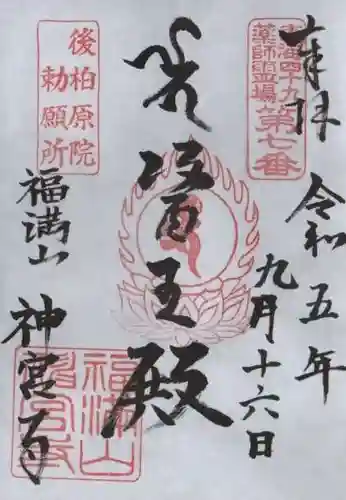 奉拝
令和五年
九月十六日
東海四十九
薬師霊場
第七番
醫王殿
後柏原院
勅願所
福満山
神宮寺
福満山
神宮寺